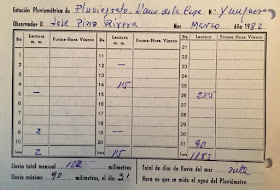 Estación Pluviométrica de Pluviografo Llano de la N.º
Observador D. Jose Pino Rivera Mes Marzo Año 1982
Días Lectura m. m. Forma-Hora Viento Días Lectura m. m. Forma-Hora Viento Días Lectura m. m. Forma-Hora Viento
1 11 21
2 12 22
3 13 23
4 14 15 24
5 15 25 285
6 16 26
7 17 27
8 2 18 28
9 19 29
10 20 30
31 90
2 15 1185
Lluvia total mensual milímetros Total de días de lluvia del mes
Lluvia máxima 90 milímetros, el día 31 Hora en que se mide el agua del Pluviómetro